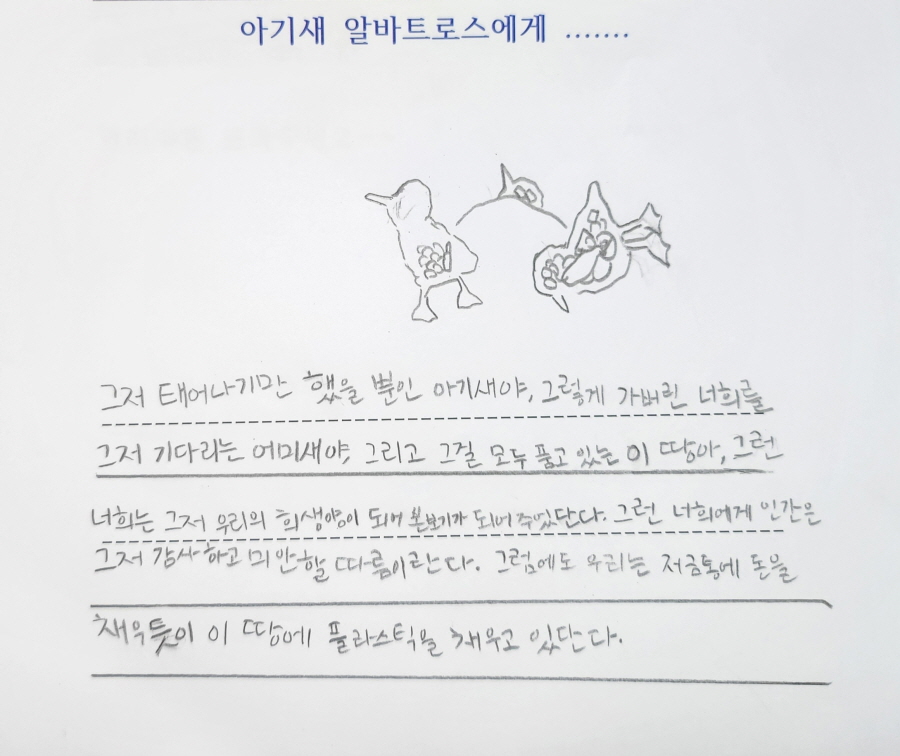 아기새 알바트로스에게 .......
그저 태어나기만 했을 뿐인 아기새야, 그렇게 가버린 너희를
그저 기다리는 어미새야, 그리고 그걸 모두 품고 있는 이 땅아, 그런
너희는 그저 우리의 희생양이 되어 본보기가 되어 주었단다. 그런 너희에게 인간은
그저 감사하고 미안할 따름이란다. 그럼에도 우리는 저금통에 돈을
채우듯이 이 땅에 플라스틱을 채우고 있단다.